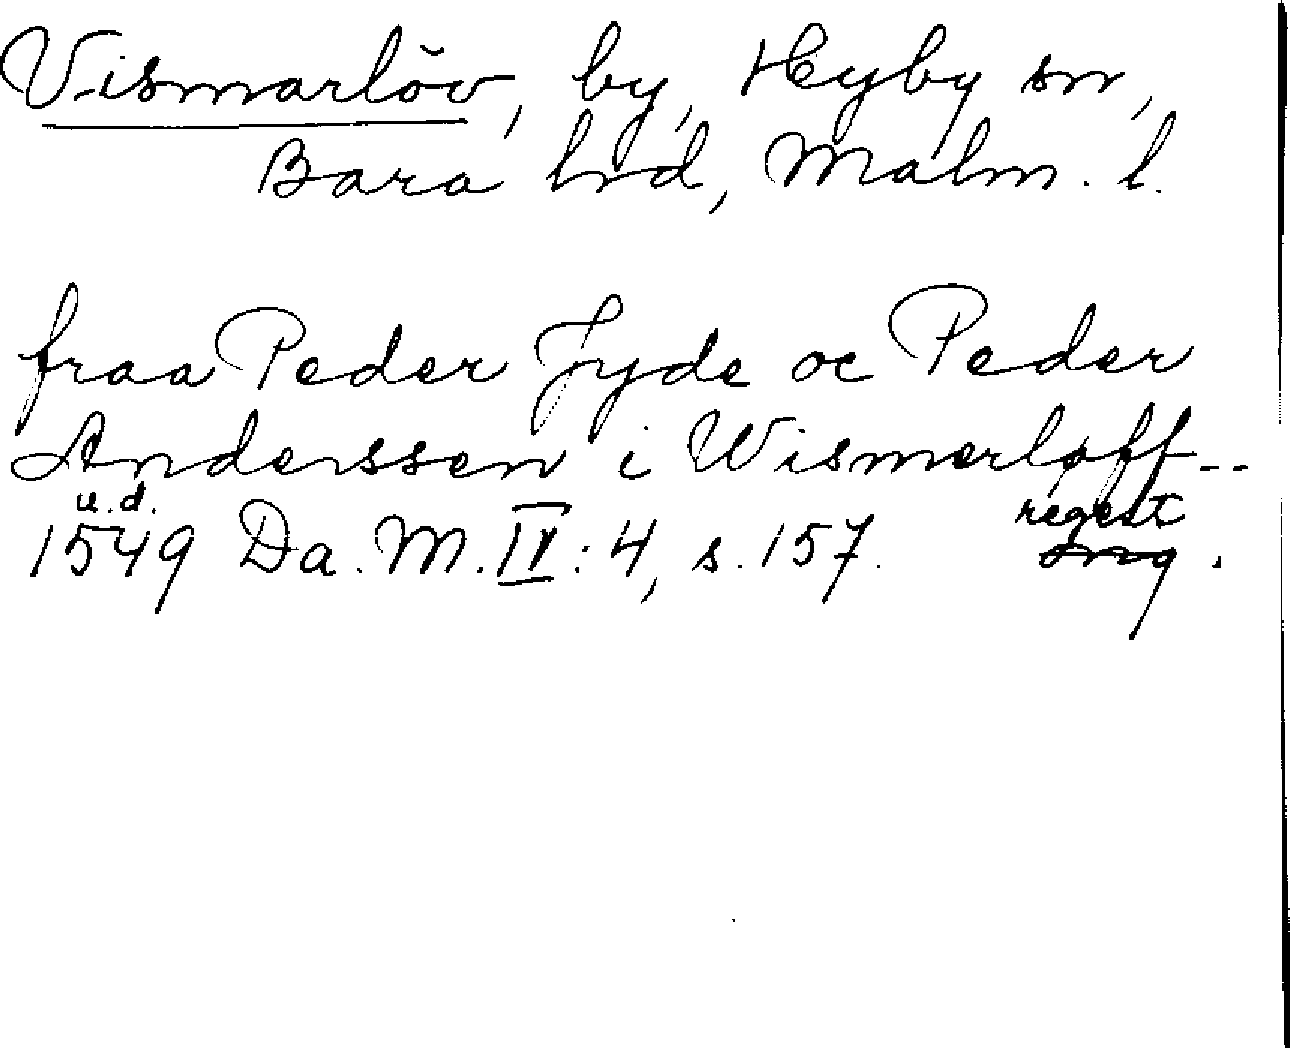 Vismarlöv, by, Hyby sn,
Bara hd, Malm. l.
fraa Peder Jyde oc Peder
Anderssen i Wismerløff--
u.d.
1549 Da. M. IV: 4, s. 157. regest.